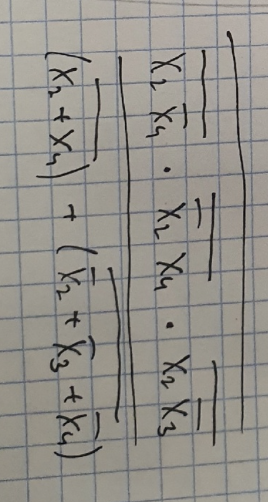 $\overline{\overline{x_2 \overline{x_4}} \cdot \overline{\overline{x_2} x_4} \cdot \overline{x_2 \overline{x_3}}}$
$\overline{\overline{(x_2 + x_4)} + \overline{(\overline{x_2} + \overline{x_3} + \overline{x_4})}}$